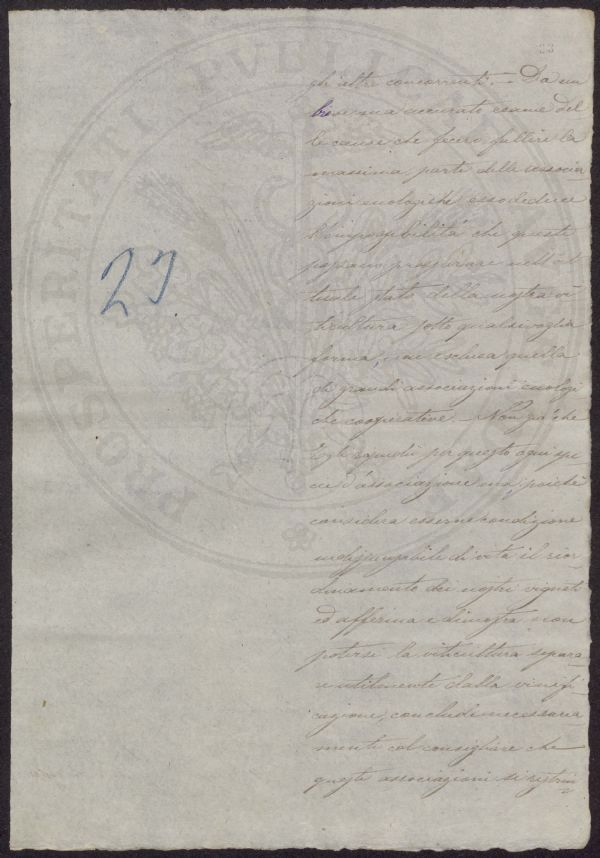 23
PROSPERITATI PVBLICAE
23
gli altri concorrenti. – Da un
breve ma accurato esame del
le cause che fecero fallire la
massima parte delle associa
zioni enologiche esso deduce
l'impossibilità che queste
possano prosperare nell'at
tuale stato della nostra vi
ticultura sotto qualsivoglia
forma, non esclusa quella
di grandi associazioni enologi
che cooperative. – Non già che
Egli ripudii per questo ogni spe
cie d'associazione ma, poichè
considera esserne condizione
indispensabile di vita il rior
dinamento dei nostri vigneti
ed afferma e dimostra non
potersi la viticultura separa
re utilmente dalla vinifi
cazione, conclude necessaria
mente col consigliare che
queste associazioni si restrin